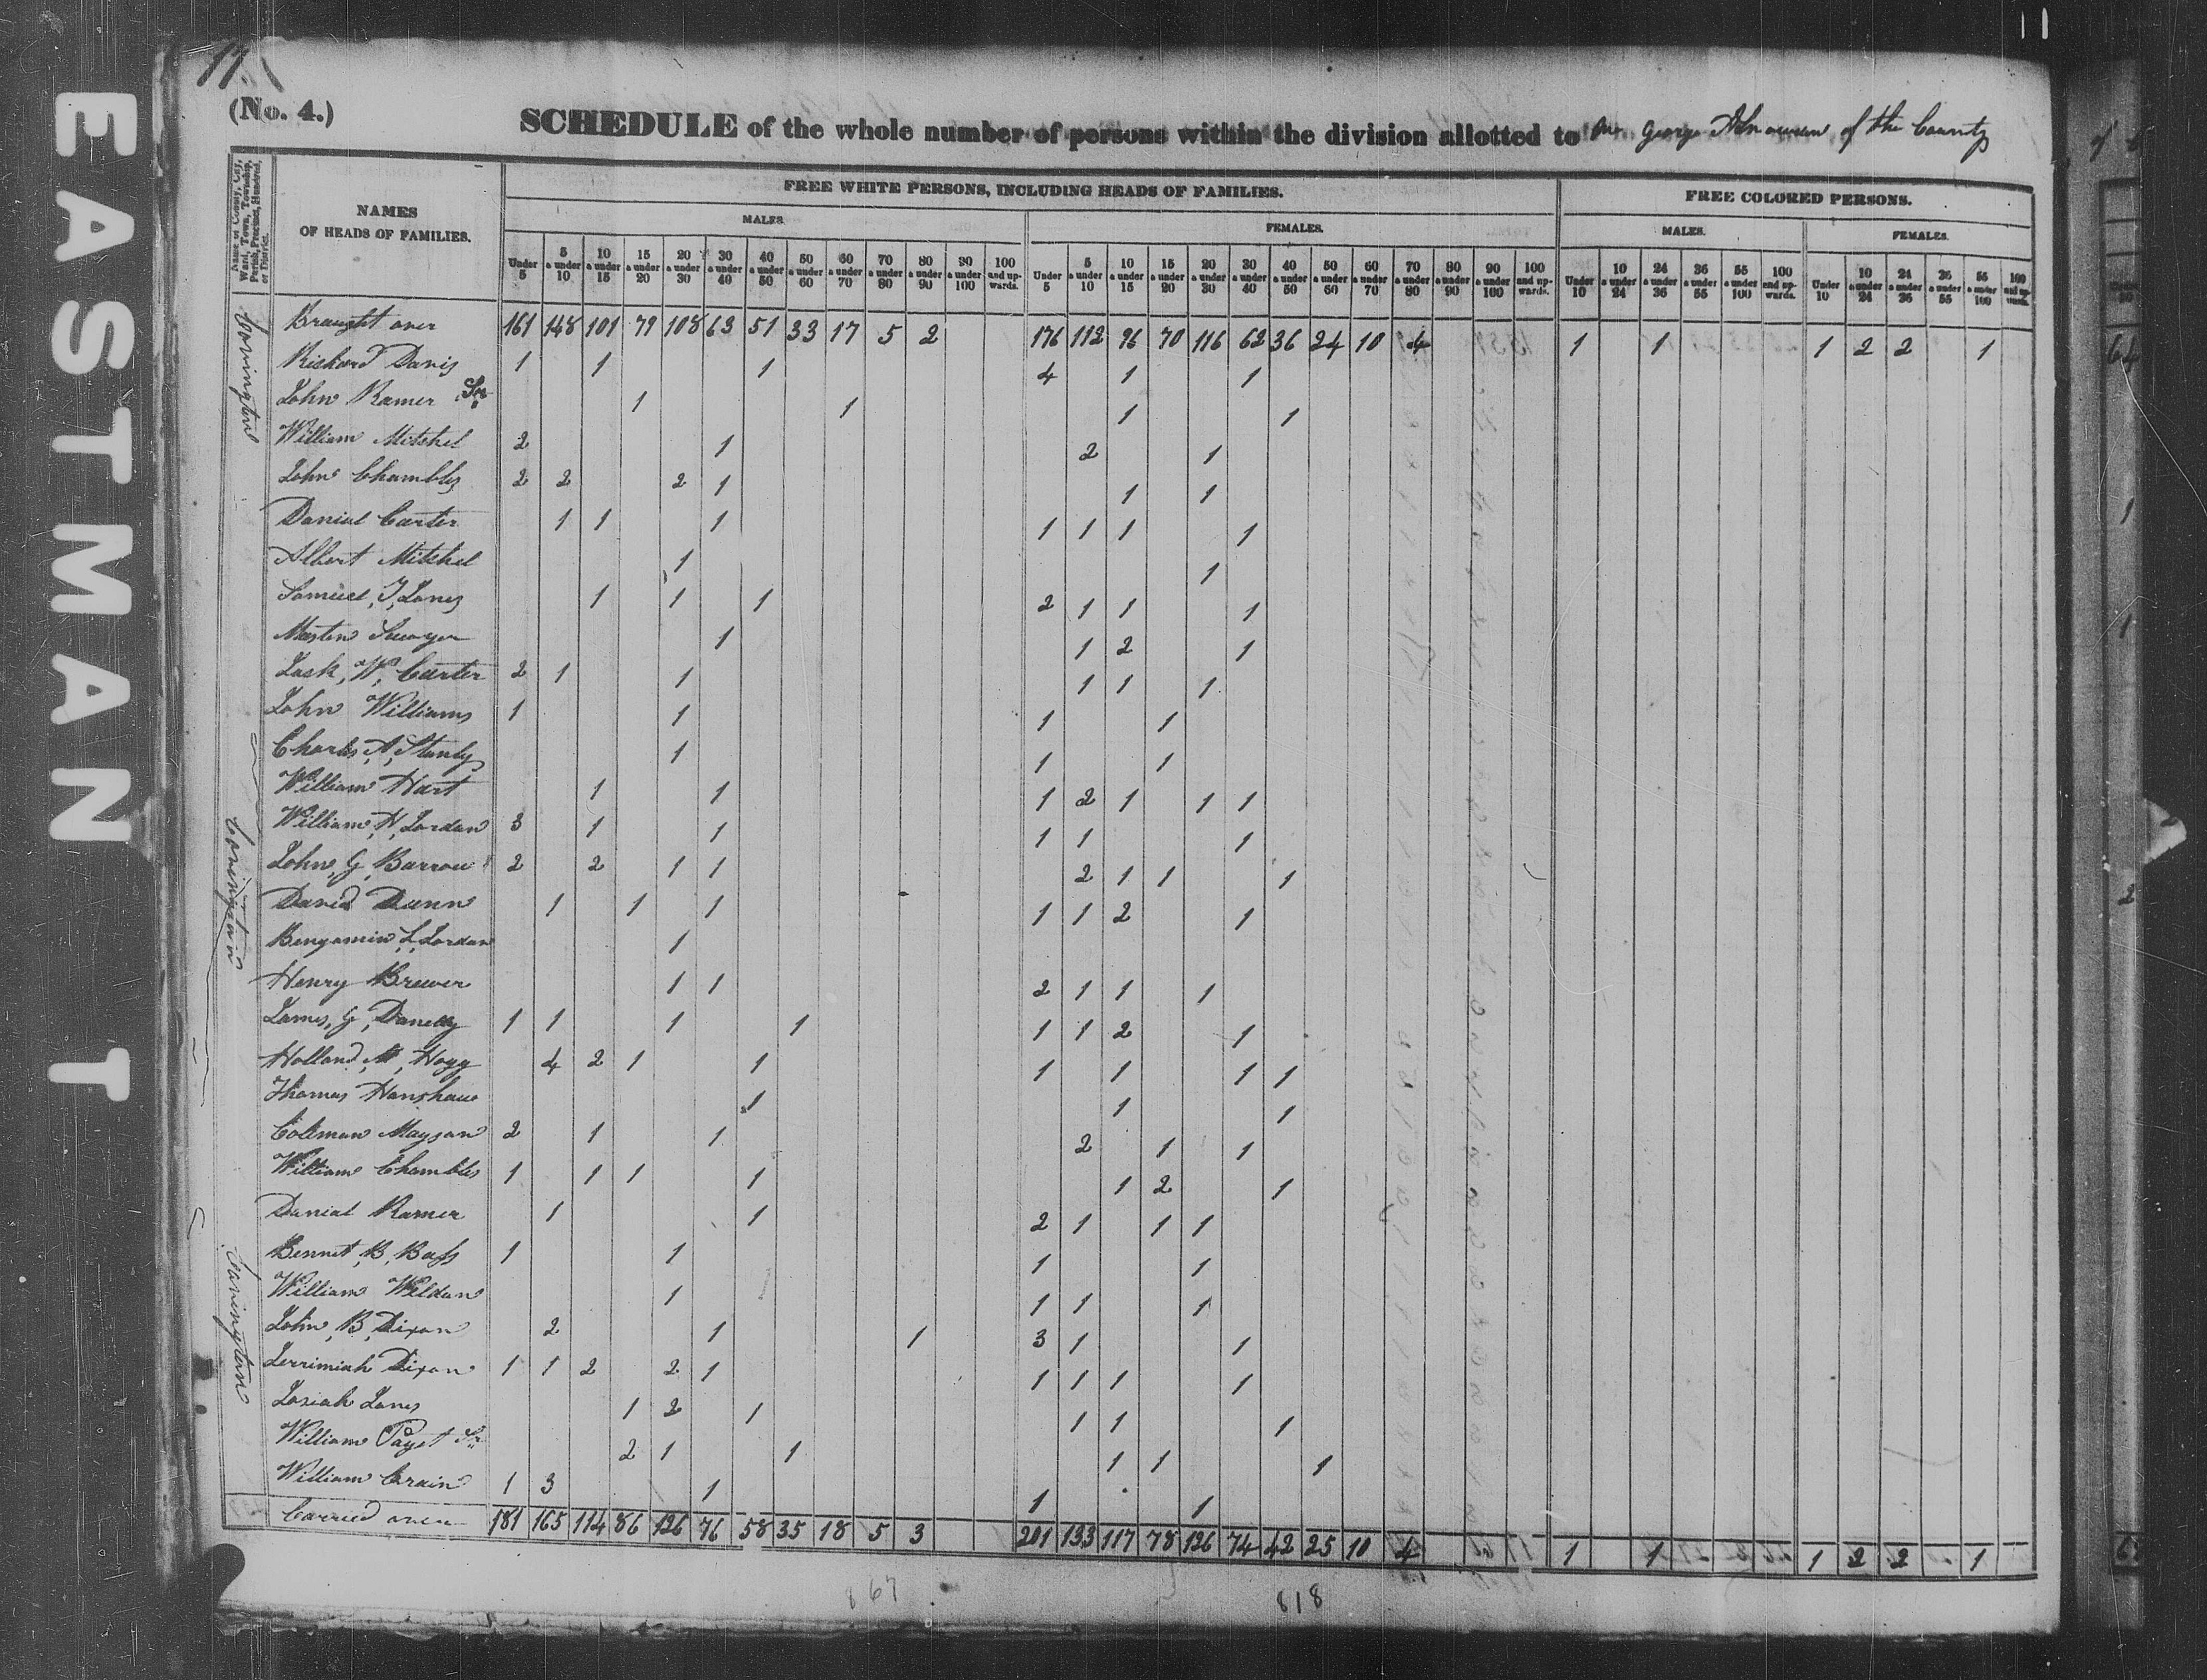 11
EASTMAN T
17
(No. 4.)
SCHEDULE of the whole number of persons within the division allotted to George of the County
Name of County, City, Ward, Town, Township, Parish, Precinct, Hundred, or District.
NAMES OF HEADS OF FAMILIES.
FREE WHITE PERSONS, INCLUDING HEADS OF FAMILIES.
FREE COLORED PERSONS.
MALES. FEMALES. MALES. FEMALES.
Under 5 | 5 & under 10 | 10 & under 15 | 15 & under 20 | 20 & under 30 | 30 & under 40 | 40 & under 50 | 50 & under 60 | 60 & under 70 | 70 & under 80 | 80 & under 90 | 90 & under 100 | 100 and upwards. | Under 5 | 5 & under 10 | 10 & under 15 | 15 & under 20 | 20 & under 30 | 30 & under 40 | 40 & under 50 | 50 & under 60 | 60 & under 70 | 70 & under 80 | 80 & under 90 | 90 & under 100 | 100 and upwards. | Under 10 | 10 & under 24 | 24 & under 36 | 36 & under 55 | 55 & under 100 | 100 and upwards. | Under 10 | 10 & under 24 | 24 & under 36 | 36 & under 55 | 55 & under 100 | 100 and upwards.
Covington
Braught over 161 148 101 79 108 63 51 33 17 5 2 176 112 96 70 116 62 36 24 10 4 1 1 1 2 2 1
Richard Davis 1 1 1 4 1 1
John Ramer Sr 1 1 1 1
William Mitchel 2 1 2 1
John Chambles 2 2 2 1 1 1
Danial Carter 1 1 1 1 1 1 1
Albert Mitchel 1 1
Samuel J Jones 1 1 1 2 1 1 1
Marten Sawyer 1 1 2 1
Zack W Carter 2 1 1 1 1 1
John Williams 1 1 1 1
Charles A Stanly 1 1 1
William Hart 1 1 1 2 1 1 1
Covington
William H Jordan 3 1 1 1 1 1
John G Barrow 2 2 1 1 2 1 1 1
David Dunn 1 1 1 1 1 2 1
Benjamin L Jordan 1
Henry Brewer 1 1 2 1 1 1
James G Danelly 1 1 1 1 1 1 2 1
Holland M Hogg 4 2 1 1 1 1 1 1
Thomas Hanshaw 1 1 1
Coleman Maysan 2 1 1 2 1 1
William Chambles 1 1 1 1 1 2 1
Danial Ramer 1 1 2 1 1 1
Covington
Bennet B Bass 1 1 1 1
William Weldan 1 1 1 1
John B Dixon 2 1 1 3 1 1
Jerrimiah Dixon 1 1 2 2 1 1 1 1 1
Josiah Jones 1 2 1 1 1 1
William Payet Sr 2 1 1 1 1 1
William Crain 1 3 1 1 1
Carried over 181 165 114 86 126 76 58 35 18 5 3 201 133 117 78 126 74 42 25 10 4 1 1 1 2 2 1
867 818